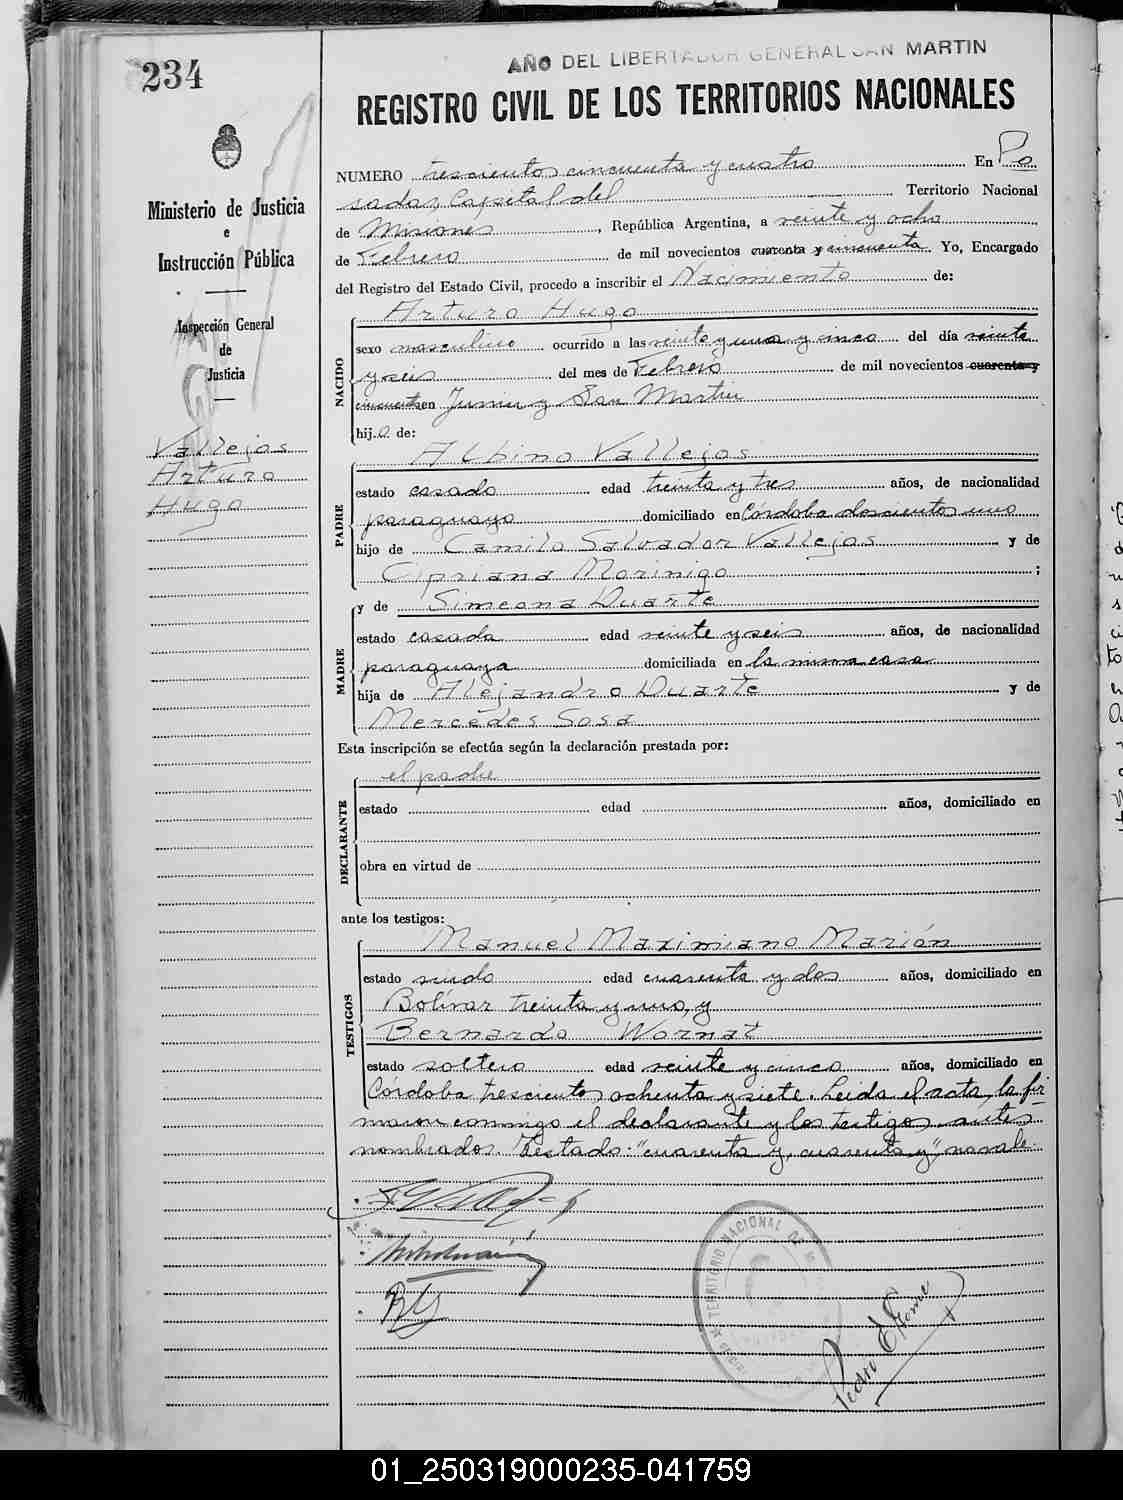 234
AÑO DEL LIBERTADOR GENERAL SAN MARTIN
REGISTRO CIVIL DE LOS TERRITORIOS NACIONALES
Ministerio de Justicia
e
Instrucción Pública
Inspección General
de
Justicia
Vallejos
Arturo
Hugo
NUMERO trescientos cincuenta y cuatro En Po
sadas, Capital del Territorio Nacional
de Misiones, República Argentina, a veinte y ocho
de Febrero de mil novecientos cuarenta y cincuenta. Yo, Encargado
del Registro del Estado Civil, procedo a inscribir el Nacimiento de:
NACIDO
Arturo Hugo
sexo masculino ocurrido a las veinte y una y cinco del día veinte
y seis del mes de Febrero de mil novecientos cuarenta y
cincuenta en Junin y San Martin
hijo de:
PADRE
Albino Vallejos
estado casado edad treinta y tres años, de nacionalidad
paraguayo domiciliado en Córdoba doscientos uno
hijo de Camilo Salvador Vallejos y de
Cipriana Morinigo ;
MADRE
y de Simeona Duarte
estado casada edad veinte y seis años, de nacionalidad
paraguaya domiciliada en la misma casa
hija de Alejandro Duarte y de
Mercedes Sosa
Esta inscripción se efectúa según la declaración prestada por:
DECLARANTE
el padre
estado edad años, domiciliado en
obra en virtud de
ante los testigos:
TESTIGOS
Manuel Maximiano Marión
estado viudo edad cuarenta y dos años, domiciliado en
Bolívar treinta y uno, y
Bernardo Wornat
estado soltero edad veinte y cinco años, domiciliado en
Córdoba trescientos ochenta y siete. Leida el acta, la fir-
maron conmigo el declarante y los testigos antes
nombrados. Testado: "cuarenta y, cuarenta y", no vale.
TERRITORIO NACIONAL DE M
Pedro E Gome
01_250319000235-041759